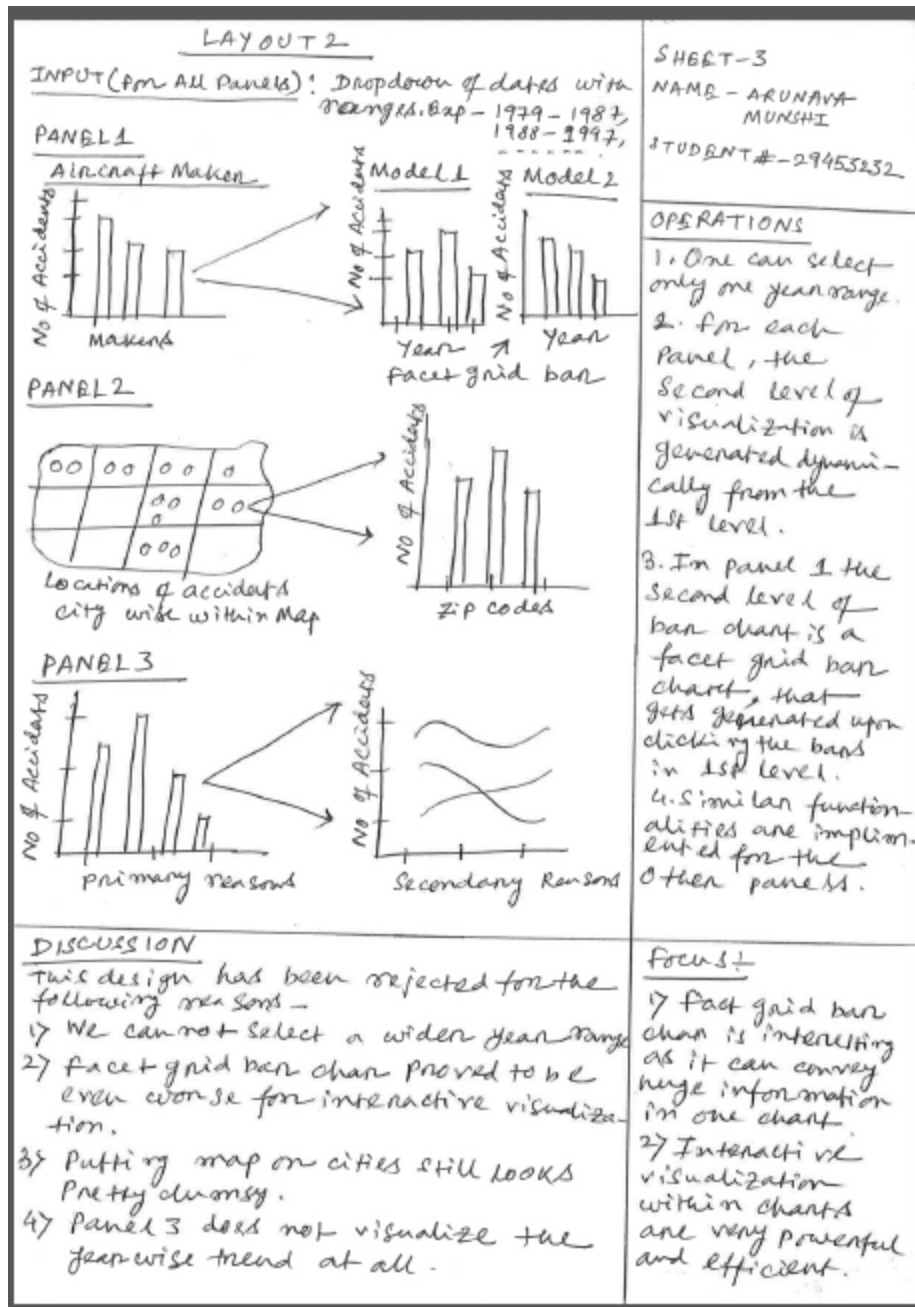 LAYOUT 2
INPUT (for All Panels): Dropdown of dates with
ranges. Exp - 1979 - 1987,
1988 - 1997,
- - - - - - -
PANEL1
Aircraft Maker
No of Accidents
Makers
Model 1
No of Accidents
Year
Model 2
No of Accidents
Year
facet grid bar
PANEL2
Locations of accidents
city wise within Map
No of Accidents
Zip codes
PANEL3
No of Accidents
primary reasons
No of Accidents
Secondary Reasons
SHEET-3
NAME - ARUNAVA
MUNSHI
STUDENT # - 29453232
OPERATIONS
1. One can select
only one year range.
2. for each
Panel, the
Second level of
visualization is
generated dynami-
cally from the
1st level.
3. In panel 1 the
second level of
bar chart is a
facet grid bar
chart, that
gets generated upon
clicking the bars
in 1st level.
4. Similar function-
alities are implim-
ented for the
Other panels.
DISCUSSION
This design has been rejected for the
following reasons -
1) We can not select a wider year range
2) facet grid bar char proved to be
even worse for interactive visualiza-
tion.
3) Putting map on cities still looks
Pretty clumsy.
4) Panel 3 does not visualize the
year wise trend at all.
Focus:
1) fact grid bar
char is interesting
as it can convey
huge information
in one chart
2) Interactive
visualization
within charts
are very powerful
and efficient.